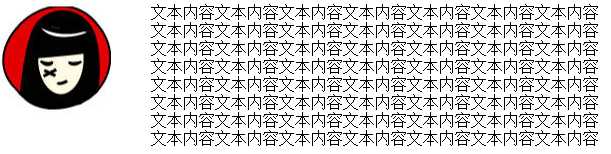 文本内容文本内容文本内容文本内容文本内容文本内容文本内容
文本内容文本内容文本内容文本内容文本内容文本内容文本内容
文本内容文本内容文本内容文本内容文本内容文本内容文本内容
文本内容文本内容文本内容文本内容文本内容文本内容文本内容
文本内容文本内容文本内容文本内容文本内容文本内容文本内容
文本内容文本内容文本内容文本内容文本内容文本内容文本内容
文本内容文本内容文本内容文本内容文本内容文本内容文本内容
文本内容文本内容文本内容文本内容文本内容文本内容文本内容